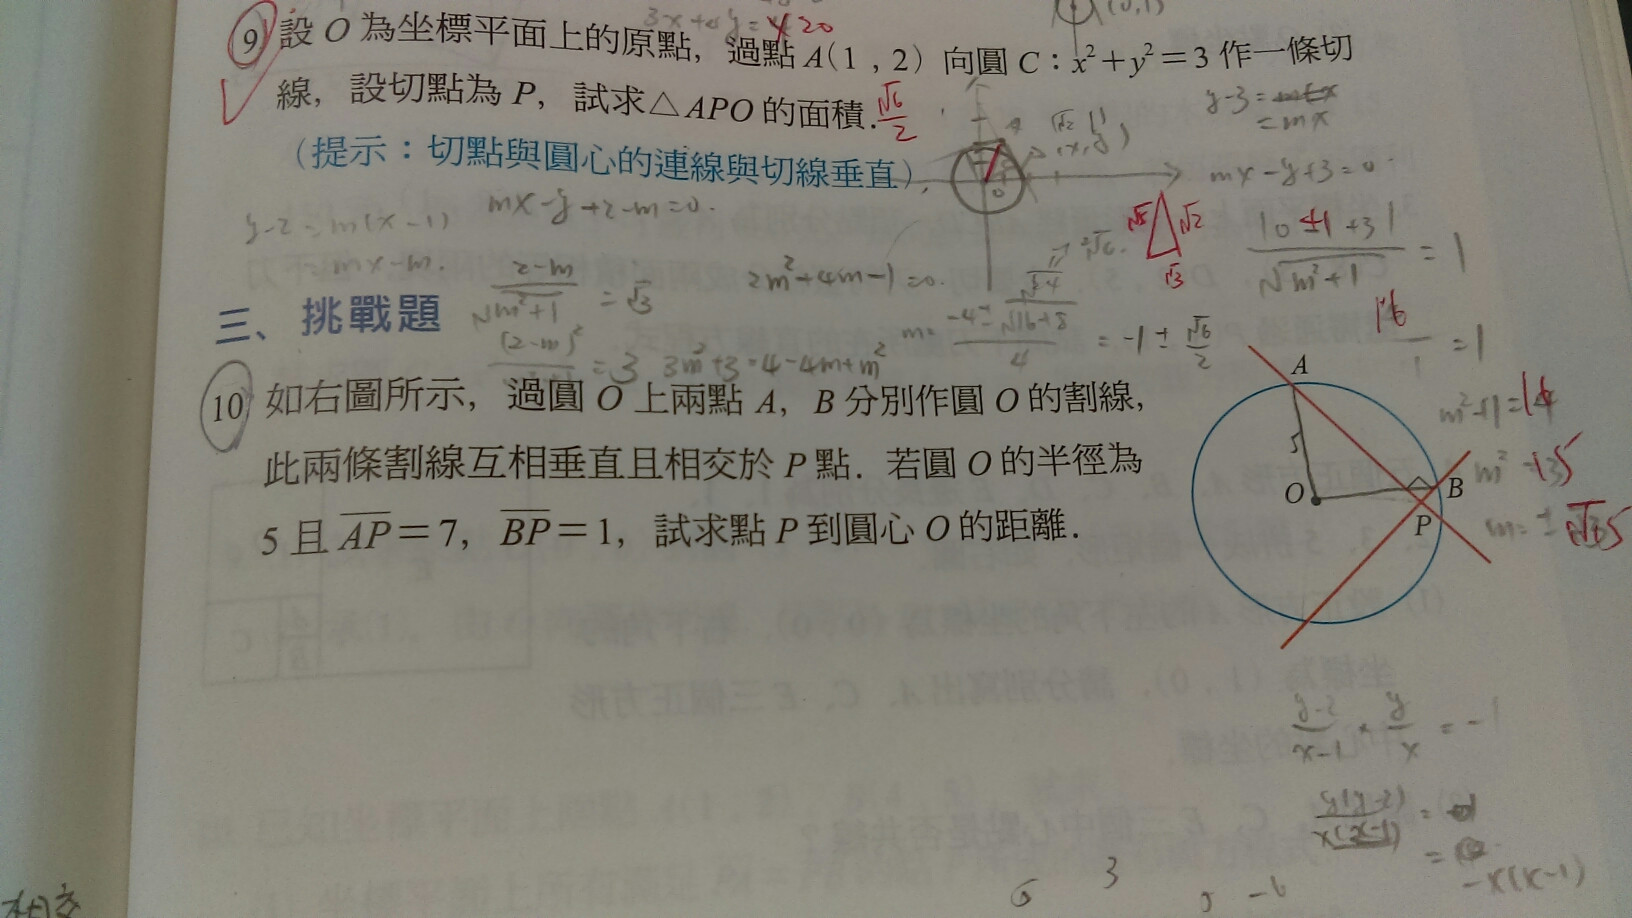 3x+4y=420
(0,1)
9 設 O 為坐標平面上的原點，過點 A(1，2) 向圓 C：x²+y²=3 作一條切
線，設切點為 P，試求△APO 的面積. √6/2
(提示：切點與圓心的連線與切線垂直).
y-3=mx
=mx
mx-y+3=0
y-2=m(x-1)
=mx-m.
mx-y+2-m=0.
|0±1+3|/√m²+1 = 1
√5 √2
√3
2-m/√m²+1 = √3
2m²+4m-1=0.
√24
m= -4±√16+8/4 = -1±√6/2
16/1 = 1
三、挑戰題
(2-m)² = 3 3m²+3=4-4m+m²
10 如右圖所示，過圓 O 上兩點 A，B 分別作圓 O 的割線，
此兩條割線互相垂直且相交於 P 點．若圓 O 的半徑為
5 且 AP=7，BP=1，試求點 P 到圓心 O 的距離．
A
5
O
B
P
m²+1=
m²
m=±
y-2/x-1 × y/x = -1
y(y-2)/x(x-1) =
= -x(x-1)
3